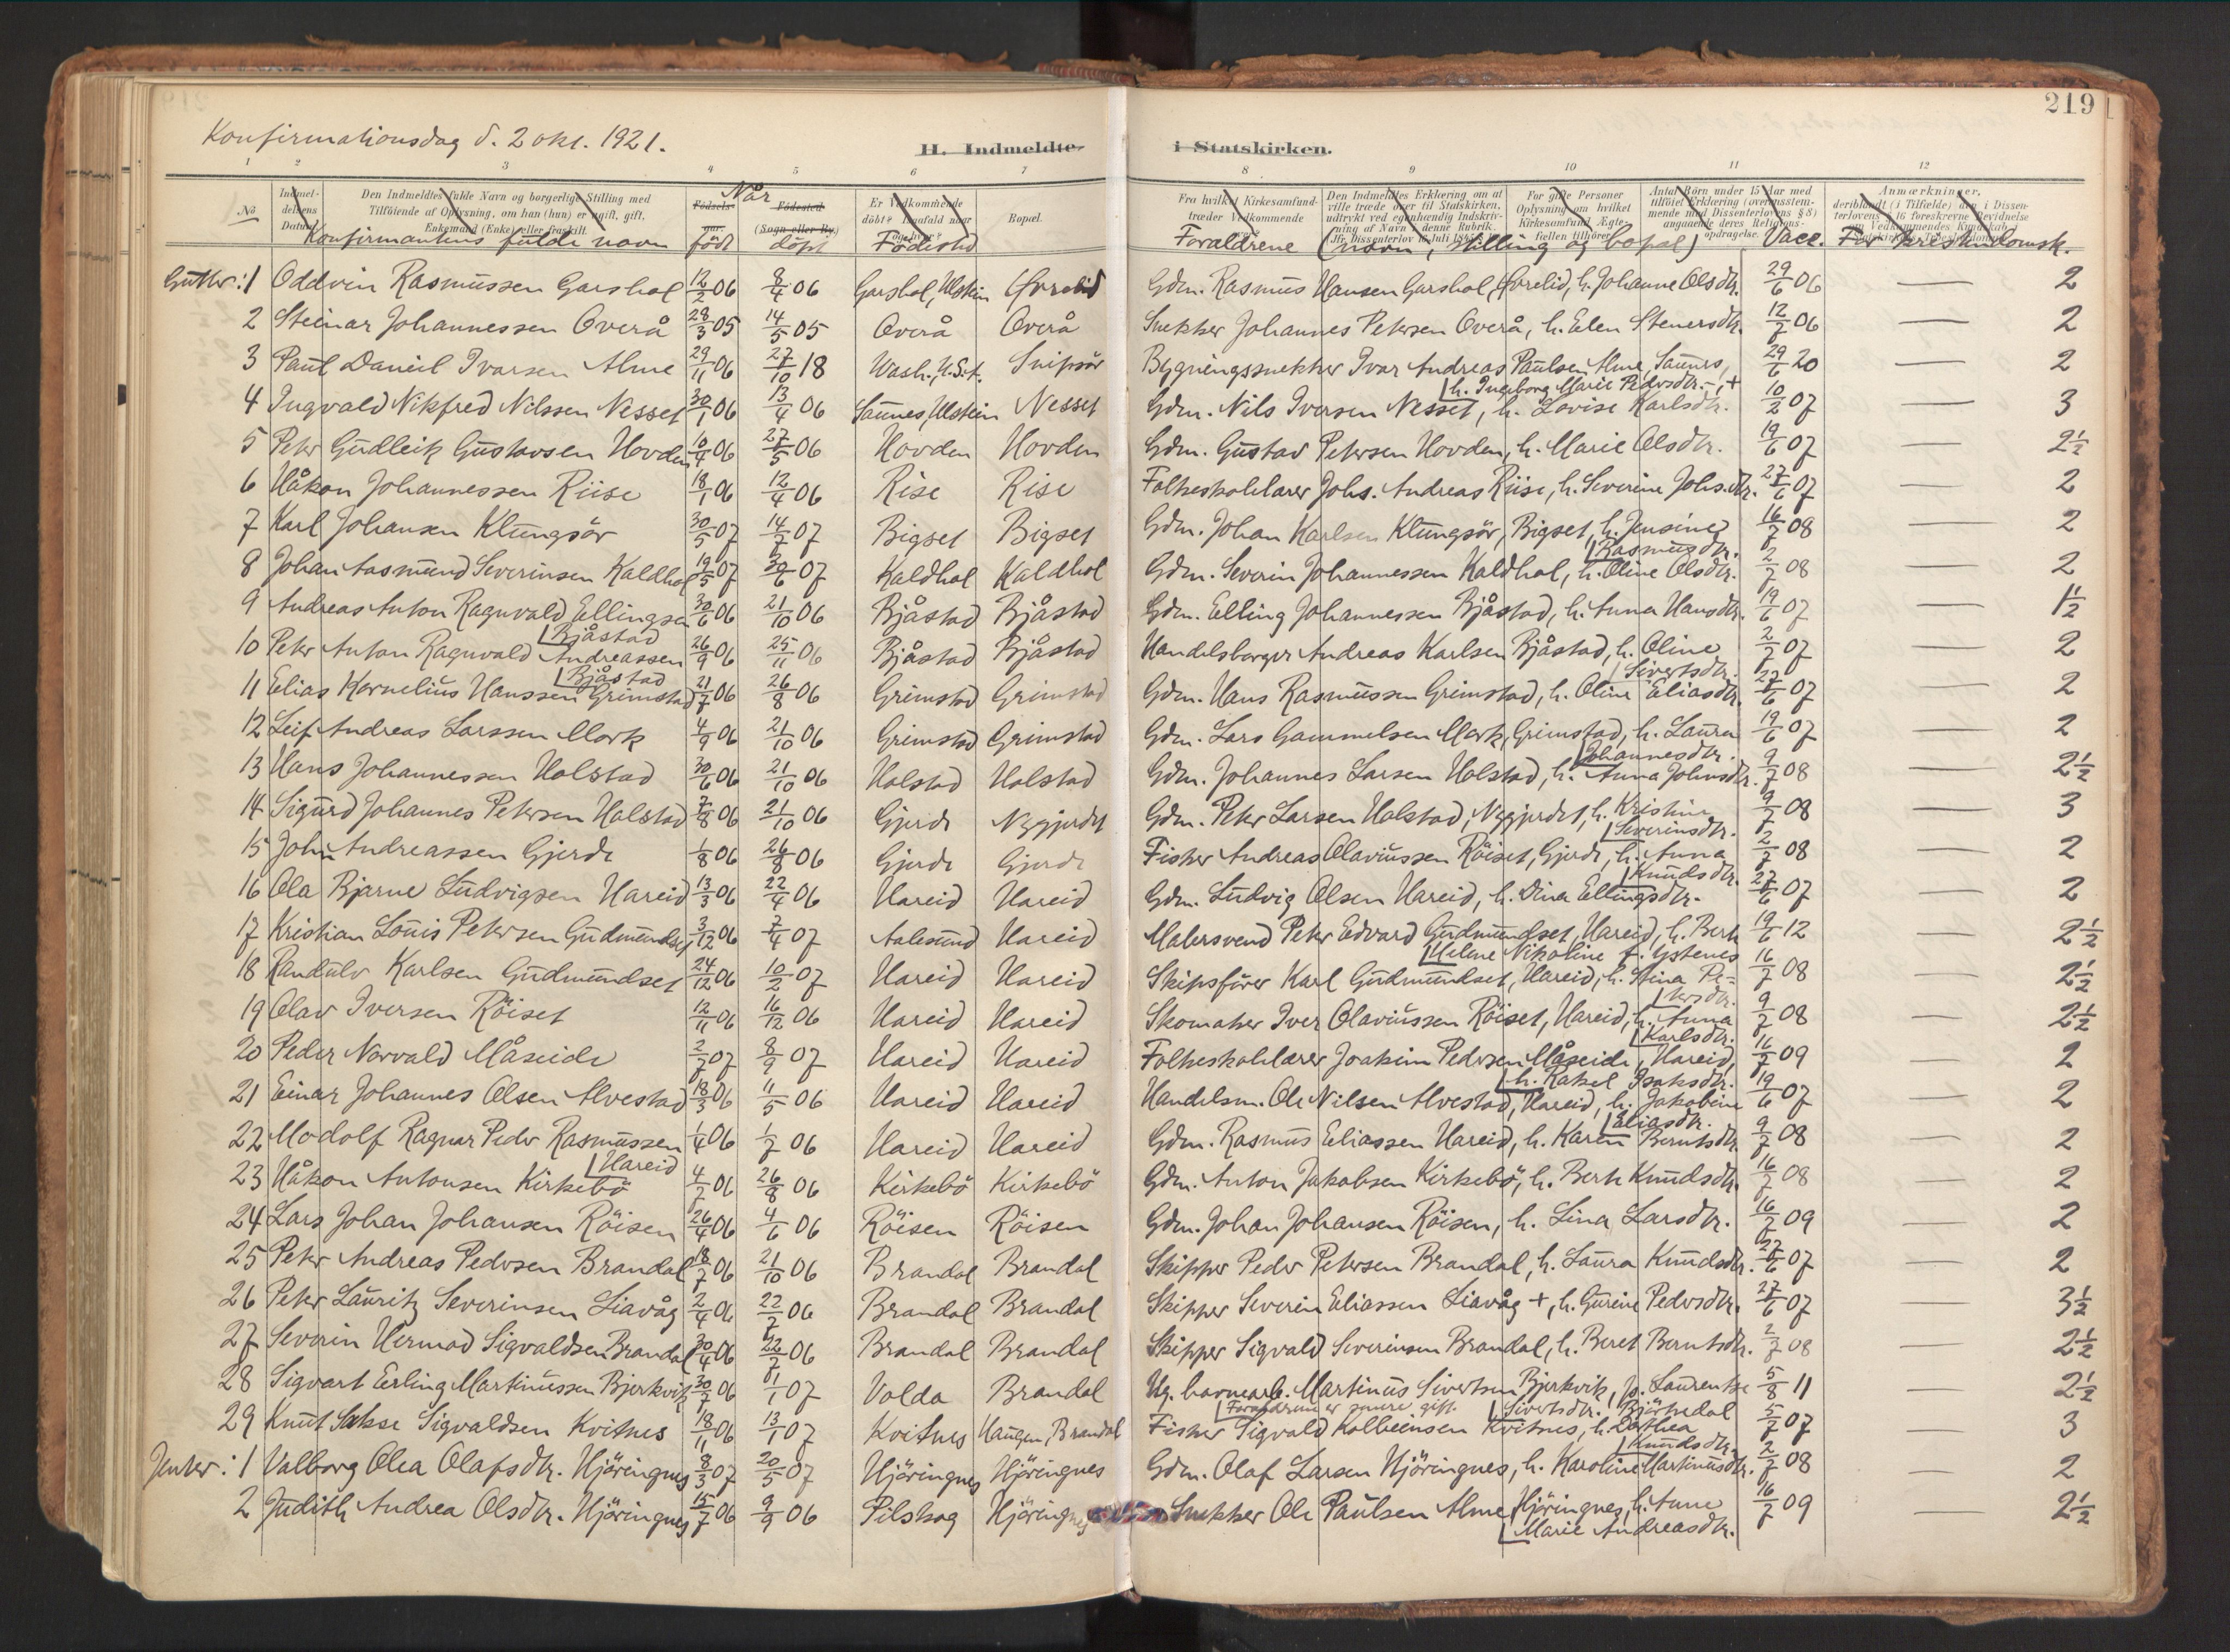 219
Konfirmationsdag d. 2 okt. 1921.
H. Indmeldte i Statskirken.
1 2 3 4 5 6 7 8 9 10 11 12
No
Indmeldelsens Datum.
Den Indmeldtes fulde Navn og borgerlige Stilling med
Tilføiende af Oplysning, om han (hun) er ugift, gift,
Enkemand (Enke) eller fraskilt.
Konfirmantens fulde navn
Når
Fødsels-aar.
født
Fødested (Sogn eller By.)
døpt
Er Vedkommende døbt? Isaafald naar og hvor?
Fødested
Bopæl.
Fra hvilket Kirkesamfund træder Vedkommende over?
Den Indmeldtes Erklæring om at ville træde over til Statskirken, udtrykt ved egenhændig Indskrivning af Navn i denne Rubrik. Jfr. Dissenterlov 16 Juli 1845
For gifte Personer Oplysning om hvilket Kirkesamfund Ægtefællen tilhører.
Antal Børn under 15 Aar med tilføiet Erklæring (overensstemmende med Dissenterlovens § 8) angaaende deres Religionsopdragelse.
Anmærkninger,
Foraldrene (navn, stilling og bopæl) Vacc. For kristendomsk.
Gutter: 1 Oddvin Rasmussen Garshol 12/2 06 8/4 06 Garshol, Ulstein Overlid Gdm. Rasmus Hansen Garshol, Overlid, h. Johanne Olsdtr. 29/6 06 — 2
2 Steinar Johannessen Overå 28/3 05 14/5 05 Overå Overå Snekker Johannes Petersen Overå, h. Elen Stenersdtr. 12/7 06 — 2
3 Paul Daniel Ivarsen Alme 29/11 06 27/10 18 Wash., U.S.A. Snipsør Bygningssnekker Ivar Andreas Paulsen Alme, Saunes, 29/6 20 — 2
h. Ingeborg Marie Pedersdtr. +
4 Ingvald Nikfred Nilssen Nesset 30/1 06 13/4 06 Saunes, Ulstein Nesset Gdm. Nils Iversen Nesset, h. Lovise Karlsdtr. 10/2 07 — 3
5 Peter Gudleik Gustavsen Hovden 10/4 06 27/5 06 Hovden Hovden Gdm. Gustav Petersen Hovden, h. Marie Olsdtr. 19/6 07 — 2½
6 Håkon Johannessen Riise 18/1 06 12/4 06 Rise Rise Folkeskolelærer Johs. Andreas Riise, h. Severine Johs.dtr. 27/6 07 — 2
7 Karl Johansen Klungsör 30/5 07 14/7 07 Bigset Bigset Gdm. Johan Karlsen Klungsör, Bigset, h. Jensine 16/7 08 — 2
Rasmusdtr.
8 Johan Aasmund Severinsen Kaldhol 19/5 07 30/6 07 Kaldhol Kaldhol Gdm. Severin Johannessen Kaldhol, h. Oline Olsdtr. 2/7 08 — 2
9 Andreas Anton Ragnvald Ellingsen 30/6 06 21/10 06 Bjåstad Bjåstad Gdm. Elling Johannessen Bjåstad, h. Anna Hansdtr. 19/6 07 — 1½
Bjåstad
10 Peter Anton Ragnvald Andreassen 26/9 06 25/11 06 Bjåstad Bjåstad Handelsborger Andreas Karlsen Bjåstad, h. Oline 2/7 07 — 2
Bjåstad Sivertsdtr.
11 Elias Kornelius Hanssen Grimstad 21/7 06 26/8 06 Grimstad Grimstad Gdm. Hans Rasmussen Grimstad, h. Oline Eliasdtr. 27/6 07 — 2
12 Leif Andreas Larssen Mork 4/9 06 21/10 06 Grimstad Grimstad Gdm. Lars Gammelsen Mork, Grimstad, h. Laura 19/6 07 — 2
Johannesdtr.
13 Hans Johannessen Holstad 30/6 06 21/10 06 Holstad Holstad Gdm. Johannes Larsen Holstad, h. Anna Johnsdtr. 9/7 08 — 2½
14 Sigurd Johannes Petersen Holstad 7/8 06 21/10 06 Gjerde Nygjerdet Gdm. Peter Larsen Holstad, Nygjerdet, h. Kristine 9/7 08 — 3
Severinsdtr.
15 John Andreassen Gjerde 1/8 06 26/8 06 Gjerde Gjerde Fisker Andreas Olaviussen Röiset, Gjerde, h. Anna 2/7 08 — 2
Knudsdtr.
16 Ola Bjarne Ludvigsen Hareid 13/3 06 22/4 06 Hareid Hareid Gdm. Ludvig Olsen Hareid, h. Dina Ellingsdtr. 27/6 07 — 2
17 Kristian Louis Petersen Gudmundset 3/12 06 7/4 07 Aalesund Hareid Malersvend Peter Edvard Gudmundset, Hareid, h. Berte 19/6 12 — 2½
Helene Nikoline f. Ystenes
18 Randulv Karlsen Gudmundset 24/12 06 10/2 07 Hareid Hareid Skipsfører Karl Gudmundset, Hareid, h. Stina Pe- 16/7 08 — 2½
tersdtr.
19 Olav Iversen Röiset 12/11 06 16/12 06 Hareid Hareid Skomaker Iver Olaviussen Röiset, Hareid, h. Anna 9/7 08 — 2½
Karlsdtr.
20 Peder Norvald Måseide 2/7 07 8/9 07 Hareid Hareid Folkeskolelærer Joakim Pedersen Måseide, Hareid, 16/7 09 — 2
h. Rakel Isaksdtr.
21 Einar Johannes Olsen Alvestad 18/3 06 11/5 06 Hareid Hareid Handelsm. Ole Nilsen Alvestad, Hareid, h. Jakobine 19/6 07 — 2
Eliasdtr.
22 Modolf Ragnar Peder Rasmussen 1/4 06 1/7 06 Hareid Hareid Gdm. Rasmus Eliassen Hareid, h. Karen Berntsdtr. 9/7 08 — 2
Hareid
23 Håkon Antonsen Kirkebö 4/7 06 26/8 06 Kirkebö Kirkebö Gdm. Anton Jakobsen Kirkebö, h. Berte Knudsdtr. 16/7 08 — 2
24 Lars Johan Johansen Röisen 26/4 06 4/6 06 Röisen Röisen Gdm. Johan Johansen Röisen, h. Lina Larsdtr. 16/7 09 — 2
25 Peter Andreas Pedersen Brandal 18/7 06 21/10 06 Brandal Brandal Skipper Peder Petersen Brandal, h. Laura Knudsdtr. 27/6 07 — 2
26 Peter Lauritz Severinsen Liavåg 2/4 06 22/7 06 Brandal Brandal Skipper Severin Eliassen Liavåg +, h. Gurine Pedersdtr. 27/6 07 — 3½
27 Severin Hermod Sigvaldsen Brandal 30/4 06 22/7 06 Brandal Brandal Skipper Sigvald Severinsen Brandal, h. Beret Berntsdtr. 2/7 08 — 2½
28 Sigvart Erling Martinussen Bjerkvik 30/7 06 1/1 07 Volda Brandal Ug. havnearb. Martinus Sivertsen Bjerkvik, p. Laurentse 5/8 11 — 2½
Foraldrene er senere gift. Sivertsdtr. Björkedal
29 Knut Sakse Sigvaldsen Kvitnes 18/11 06 13/1 07 Kvitnes Haugen, Brandal Fisker Sigvald Kolbeinsen Kvitnes, h. Dorthea 5/7 07 — 3
Knudsdtr.
Jenter: 1 Valborg Olea Olafsdtr. Hjöringnes 8/3 07 20/5 07 Hjöringnes Hjöringnes Gdm. Olaf Larsen Hjöringnes, h. Karoline Martinusdtr. 2/7 08 — 2
2 Judith Andrea Olsdtr. Hjöringnes 15/7 06 9/9 06 Pilskog Hjöringnes Snekker Ole Paulsen Alme, Hjöringnes, h. Anne 16/7 09 — 2½
Marie Andreasdtr.